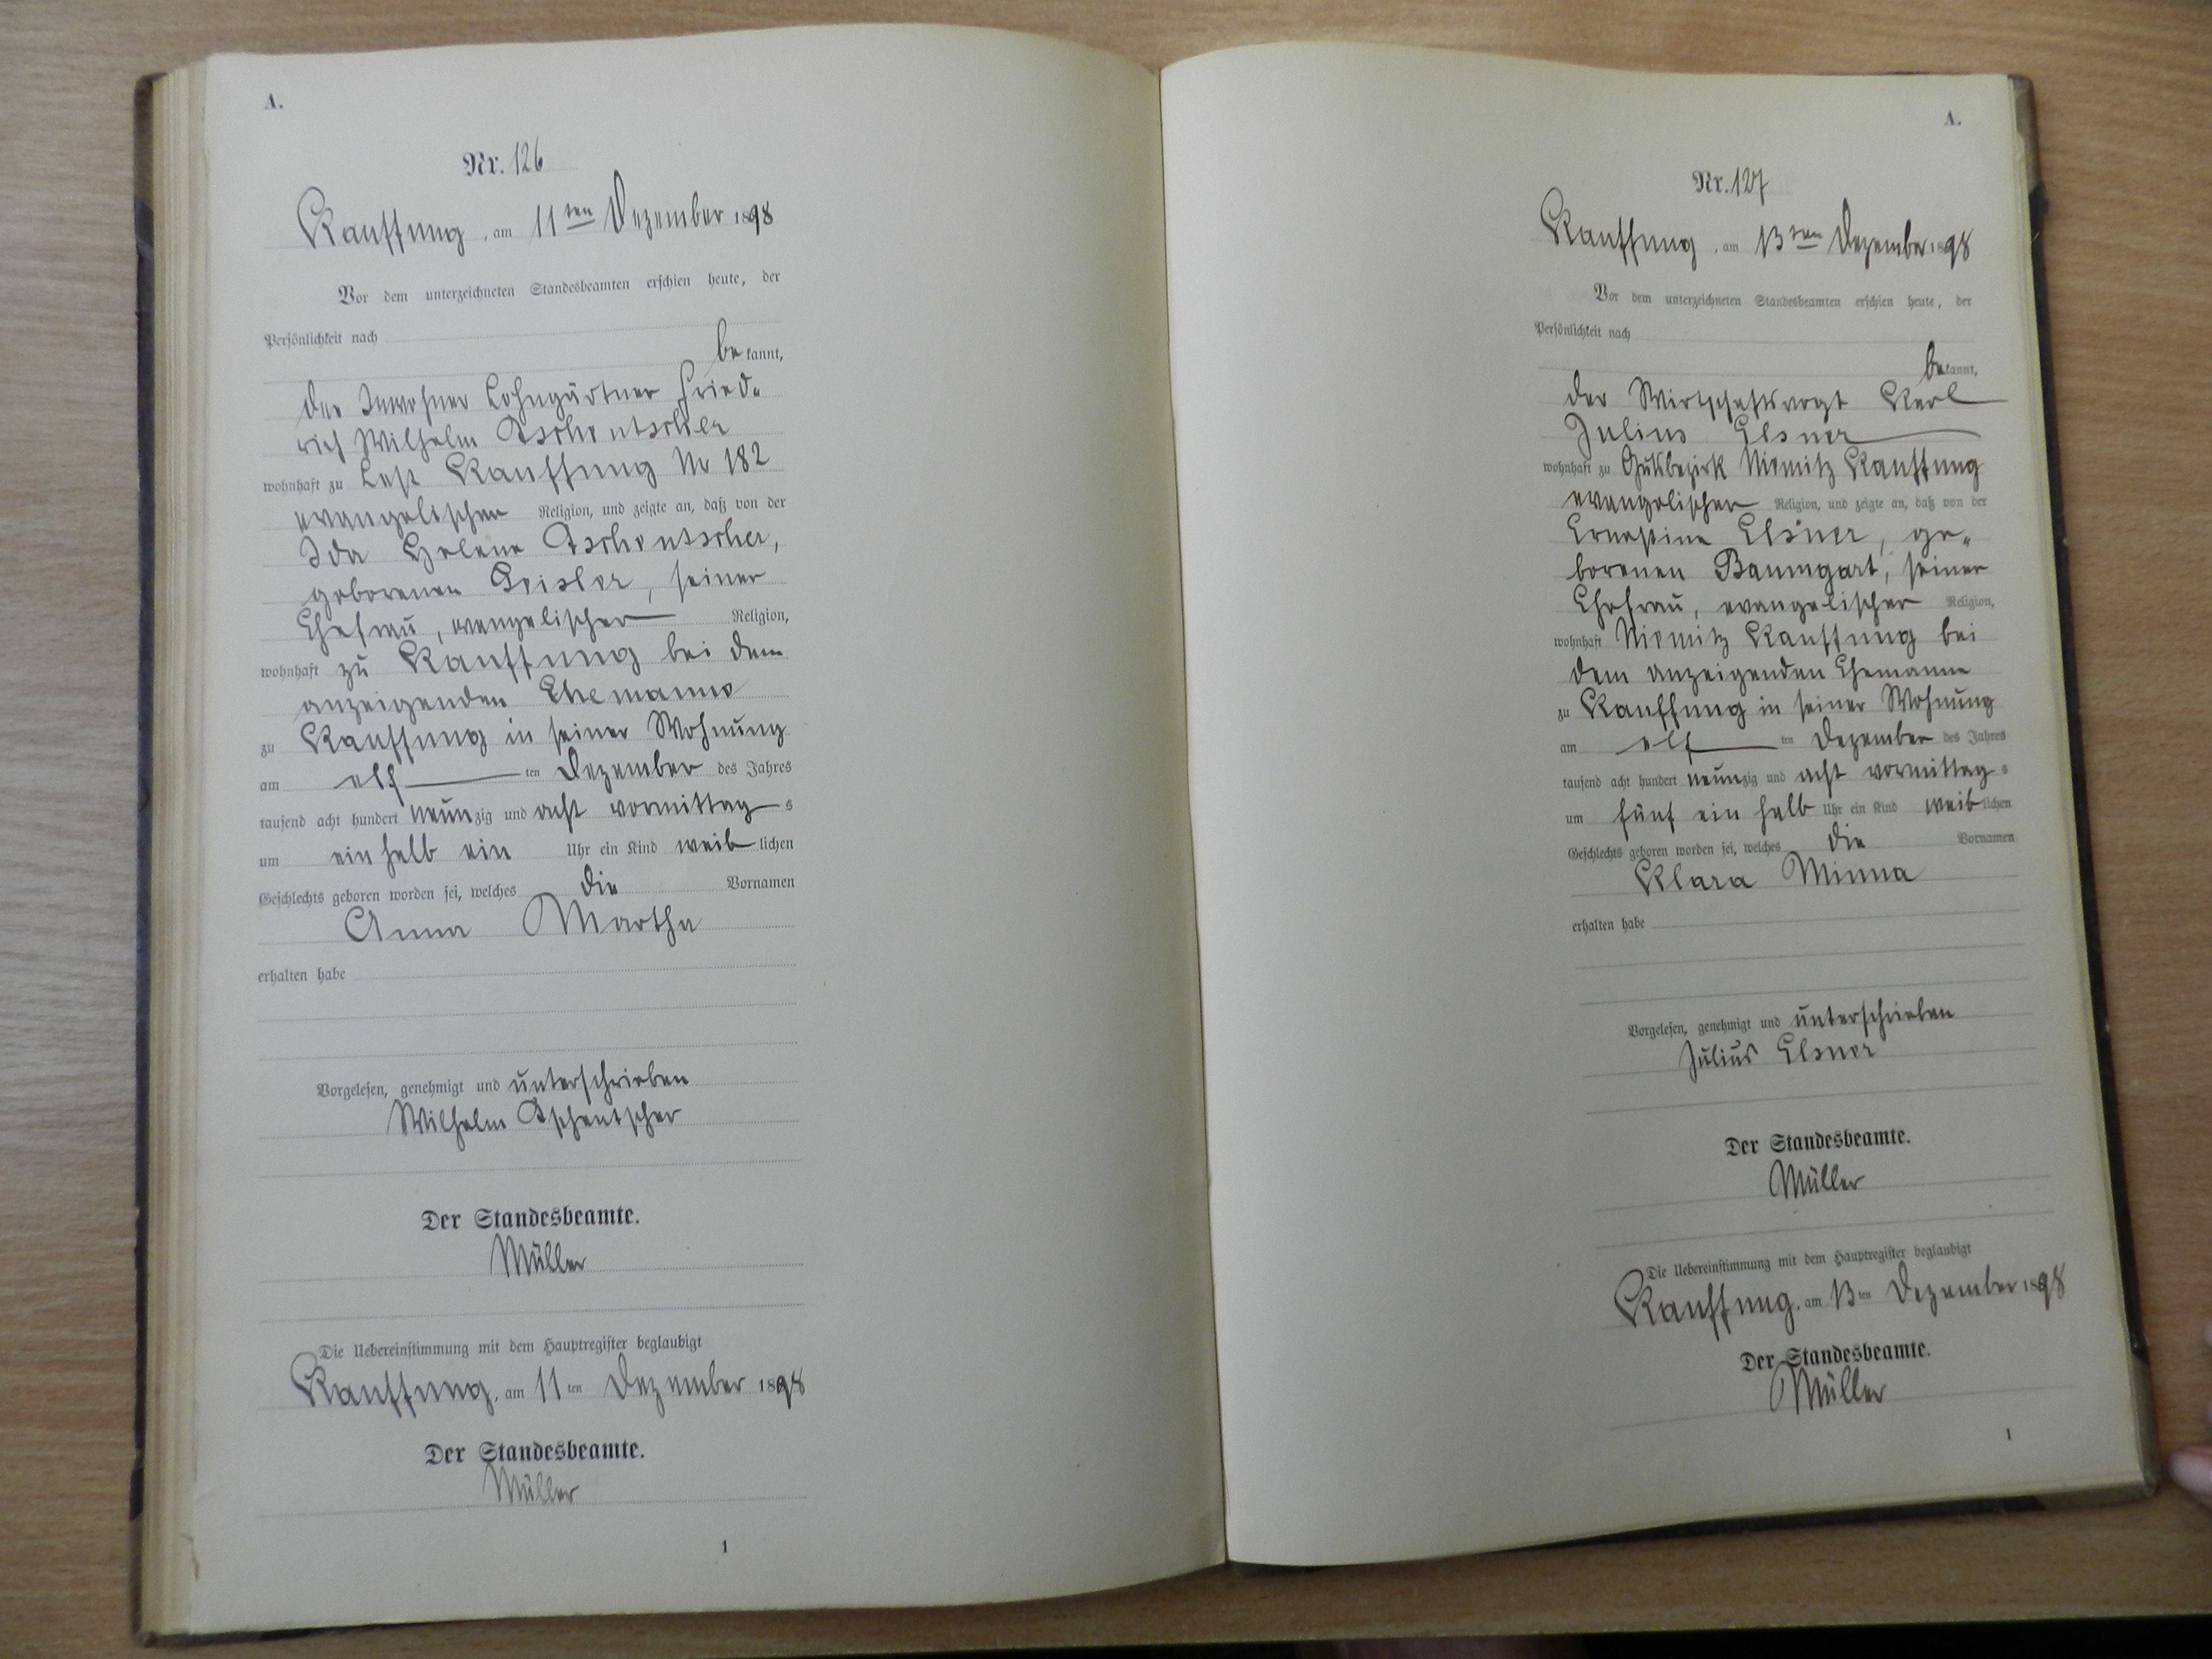 A.
Nr. 126
Kauffung, am 11ten Dezember 1898
Vor dem unterzeichneten Standesbeamten erschien heute, der
Persönlichkeit nach
bekannt,
der Inwohner Lohngärtner Fried-
rich Wilhelm Tschentscher
wohnhaft zu Kauffung Nr 182
evangelischer Religion, und zeigte an, daß von der
Ida Helene Tschentscher,
geborenen Geisler, seiner
Ehefrau, evangelischer Religion,
wohnhaft zu Kauffung bei dem
anzeigenden Ehemanne
zu Kauffung in seiner Wohnung
am elften Dezember des Jahres
tausend acht hundert neunzig und acht vormittags
um ein halb ein Uhr ein Kind weiblichen
Geschlechts geboren worden sei, welches die Vornamen
Anna Martha
erhalten habe
Vorgelesen, genehmigt und unterschrieben
Wilhelm Tschentscher
Der Standesbeamte.
Müller
Die Uebereinstimmung mit dem Hauptregister beglaubigt
Kauffung, am 11ten Dezember 1898
Der Standesbeamte.
Müller
1
A.
Nr. 127
Kauffung, am 13ten Dezember 1898
Vor dem unterzeichneten Standesbeamten erschien heute, der
Persönlichkeit nach
bekannt,
der Wirtschaftsvogt Karl
Julius Elsner
wohnhaft zu Gutsbezirk Niemitz Kauffung
evangelischer Religion, und zeigte an, daß von der
Ernestine Elsner, ge-
borenen Baumgart, seiner
Ehefrau, evangelischer Religion,
wohnhaft Niemitz Kauffung bei
dem anzeigenden Ehemanne
zu Kauffung in seiner Wohnung
am elften Dezember des Jahres
tausend acht hundert neunzig und acht vormittags
um fünf ein halb Uhr ein Kind weiblichen
Geschlechts geboren worden sei, welches die Vornamen
Klara Minna
erhalten habe
Vorgelesen, genehmigt und unterschrieben
Julius Elsner
Der Standesbeamte.
Müller
Die Uebereinstimmung mit dem Hauptregister beglaubigt
Kauffung, am 13ten Dezember 1898
Der Standesbeamte.
Müller
1